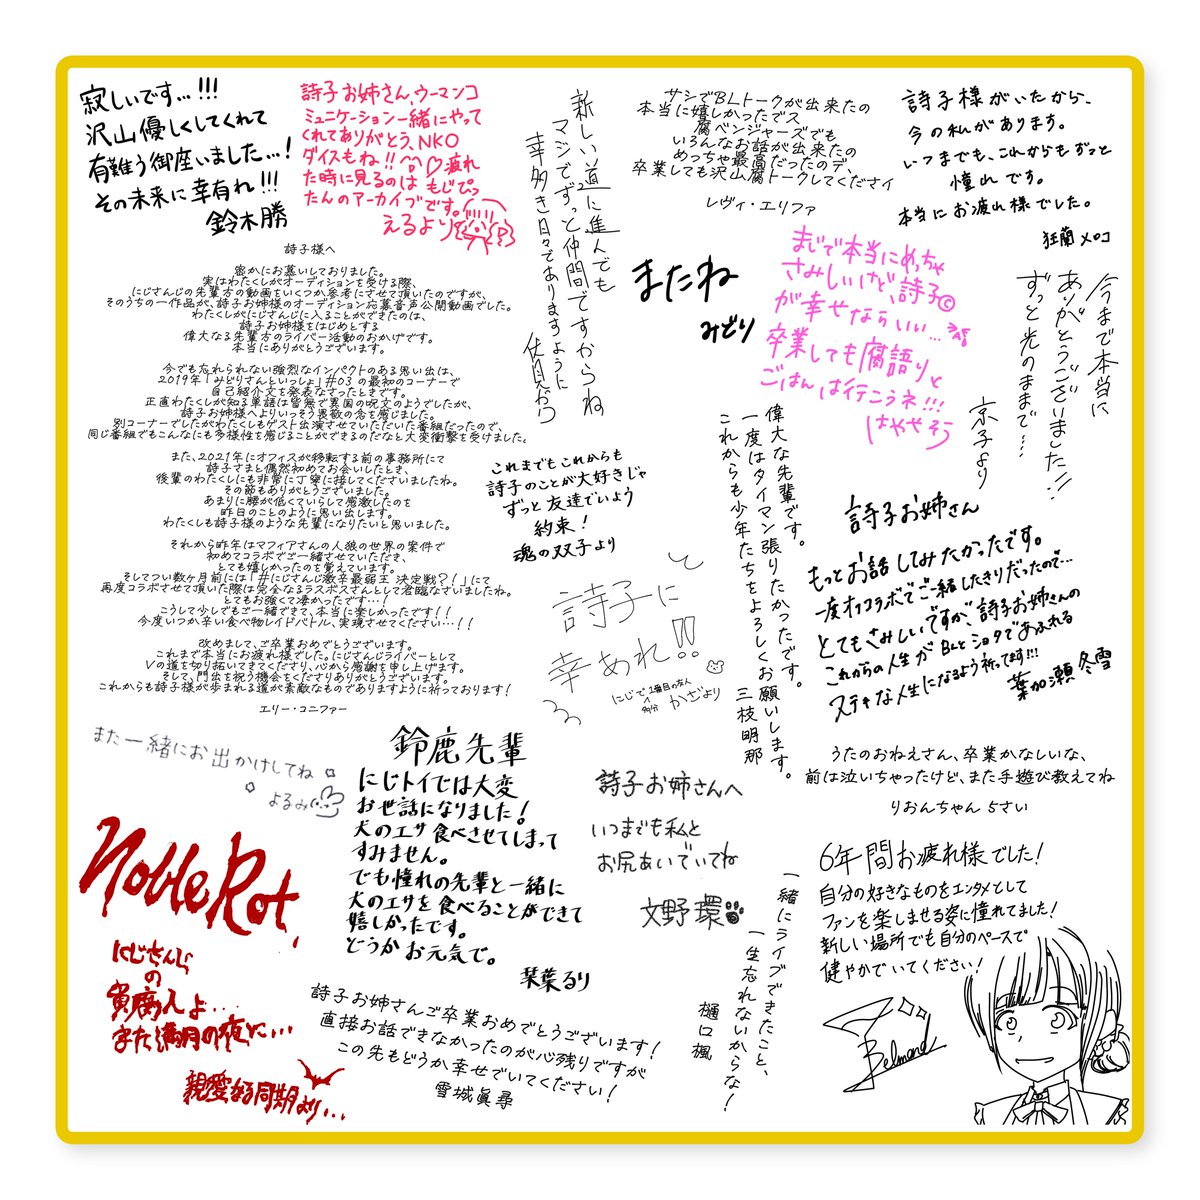 寂しいです…!!!
沢山優しくしてくれて
有難う御座いました…!
その未来に幸有れ!!!
鈴木勝
詩子お姉さん、ウーマンコ
ミュニケーション一緒にやって
くれてありがとう、NKO
ダイスもね!!^^♡疲れ
た時に見るのは もじぴっ
たんのアーカイブです。
えるより
新しい道に進んでも
マジでずっと仲間ですからね
幸多き日々でありますように
伏見ガク
サシでBLトークが出来たの
本当に嬉しかったでス
腐ベンジャーズでも
いろんなお話が出来たの
めっちゃ最高だったのデ、
卒業しても沢山腐トークしてくださイ
レヴィ・エリファ
詩子様がいたから、
今の私があります。
いつまでも、これからもずっと
憧れです。
本当にお疲れ様でした。
狂蘭メロコ
詩子様へ
密かにお慕いしておりました。
実はわたくしがオーディションを受ける際、
にじさんじの先輩方の動画をいくつか参考にさせて頂いたのですが、
そのうちの一作品が、詩子お姉様のオーディション応募音声公開動画でした。
わたくしがにじさんじに入ることができたのは、
詩子お姉様をはじめとする
偉大なる先輩方のライバー活動のおかげです。
本当にありがとうございます。
今でも忘れられない強烈なインパクトのある思い出は、
2019年「みどりさんといっしょ」#03 の最初のコーナーで
自己紹介文を発表なさったときです。
正直わたくしが知る単語は皆無で異国の呪文のようでしたが、
詩子お姉様へよりいっそう畏敬の念を感じました。
別コーナーでしたがわたくしもゲスト出演させていただいた番組だったので、
同じ番組でもこんなにも多様性を感じることができるのだなと大変衝撃を受けました。
また、2021年にオフィスが移転する前の事務所にて
詩子さまと偶然初めてお会いしたとき、
後輩のわたくしにも非常に丁寧に接してくださいましたね。
その節もありがとうございました。
あまりに腰が低くていらして感激したのを
昨日のことのように思い出します。
わたくしも詩子様のような先輩になりたいと思いました。
それから昨年はマフィアさんの人狼の世界の案件で
初めてコラボでご一緒させていただき、
とても嬉しかったのを覚えています。
そしてつい数ヶ月前には「#にじさんじ激辛最弱王 決定戦?!」にて
再度コラボさせて頂いた際は完全なるラスボスさんとして君臨なさいましたね。
とてもお強くて凄かったです…!
こうして少しでもご一緒できて、本当に楽しかったです!!
今度いつか辛い食べ物レイドバトル、実現させてください…!!
改めまして、ご卒業おめでとうございます。
これまで本当にお疲れ様でした。にじさんじライバーとして
Vの道を切り拓いてきてくださり、心から感謝を申し上げます。
そして、門出を祝う機会をくださりありがとうございます。
これからも詩子様が歩まれる道が素敵なものでありますように祈っております!
エリー・コニファー
またね
みどり
まじで本当にめっちゃ
さみしいけど、詩子©
が幸せならいい…
卒業しても腐語りと
ごはんは行こうネ!!!
はやせそう
今まで本当に
ありがとうございました!!
ずっと光のままで…
京子より
これまでもこれからも
詩子のことが大好きじゃ
ずっと友達でいよう
約束!
魂の双子より
偉大な先輩です。
一度はタイマン張りたかったです。
これからも少年たちをよろしくお願いします。
三枝明那
詩子お姉さん
もっとお話してみたかったです。
一度オフコラボでご一緒したきりだったので…
とてもさみしいですが、詩子お姉さんの
これからの人生がBLとショタであふれる
ステキな人生になるよう祈ってます!!!
葉加瀬冬雪
詩子に
幸あれ!!
にじで1番目の友人
多分
かざより
また一緒にお出かけしてね
よるみ
鈴鹿先輩
にじトイでは大変
お世話になりました!
犬のエサ食べさせてしまって
すみません。
でも憧れの先輩と一緒に
犬のエサを食べることができて
嬉しかったです。
どうかお元気で。
栞葉るり
詩子お姉さんへ
いつまでも私と
お尻あいでいてね
文野環
うたのおねえさん、卒業かなしいな、
前は泣いちゃったけど、また手遊び教えてね
りおんちゃん 5さい
Noble Rot,
にじさんじ
の
貴腐人よ…
また満月の夜に…
親愛なる同期より…
詩子お姉さんご卒業おめでとうございます!
直接お話できなかったのが心残りですが
この先もどうか幸せでいてください!
雪城眞尋
一緒にライブできたこと、
一生忘れないからな!
樋口楓
6年間お疲れ様でした!
自分の好きなものをエンタメとして
ファンを楽しませる姿に憧れてました!
新しい場所でも自分のペースで
健やかでいてください!
Belmond